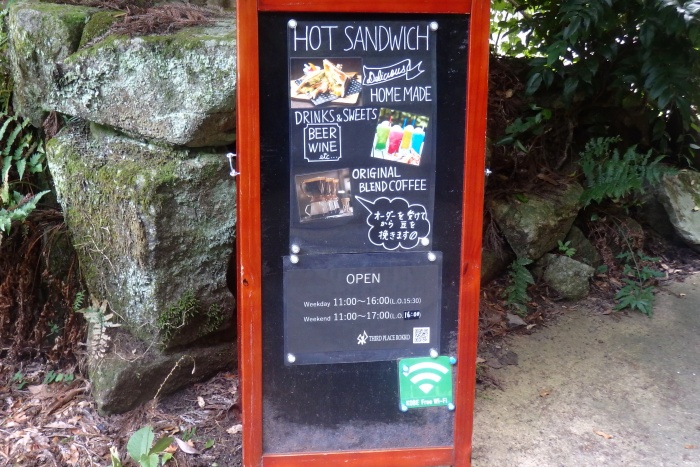 HOT SANDWICH
Delicious!
HOME MADE
DRINKS & SWEETS
BEER
WINE
etc...
ORIGINAL
BLEND COFFEE
オーダーを受けて
から 豆を
挽きます
OPEN
Weekday 11:00〜16:00(L.O.15:30)
Weekend 11:00〜17:00(L.O.16:00)
THIRD PLACE ROKKO
KOBE Free Wi-Fi